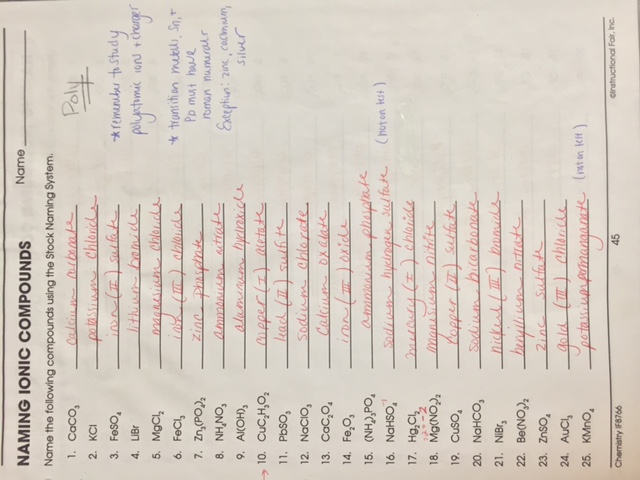 NAMING IONIC COMPOUNDS
Name
Name the following compounds using the Stock Naming System.
Poly
1. CaCO₃ calcium carbonate
2. KCl potassium chloride
3. FeSO₄ iron (II) sulfate
4. LiBr lithium bromide
5. MgCl₂ magnesium chloride
6. FeCl₃ iron (III) chloride
7. Zn₃(PO₄)₂ zinc phosphate
8. NH₄NO₃ ammonium nitrate
9. Al(OH)₃ aluminum hydroxide
→ 10. CuC₂H₃O₂ copper (I) acetate
11. PbSO₃ lead (II) sulfite
12. NaClO₃ sodium chlorate
13. CaC₂O₄ calcium oxalate
14. Fe₂O₃ iron (III) oxide
15. (NH₄)₃PO₄ ammonium phosphate
16. NaHSO₄⁻¹ sodium hydrogen sulfate (not on test)
17. Hg₂Cl₂ mercury (I) chloride
18. Mg(NO₂)₂ magnesium nitrite
19. CuSO₄ copper (II) sulfate
20. NaHCO₃ sodium bicarbonate
21. NiBr₃ nickel (III) bromide
22. Be(NO₃)₂ beryllium nitrate
23. ZnSO₄ zinc sulfate
24. AuCl₃ gold (III) chloride
25. KMnO₄ potassium permanganate (not on test)
*remember to study
polyatomic ions + charges
* transition metals, Sn, +
Pb must have
roman numerals
Exception: zinc, cadmium,
silver
Chemistry IF8766
45
©Instructional Fair, Inc.